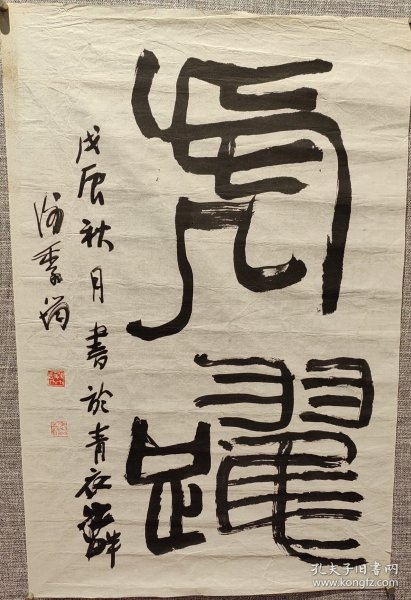 虎躍
戊辰秋月書於青衣畔
孔夫子旧书网
www.kongfz.com